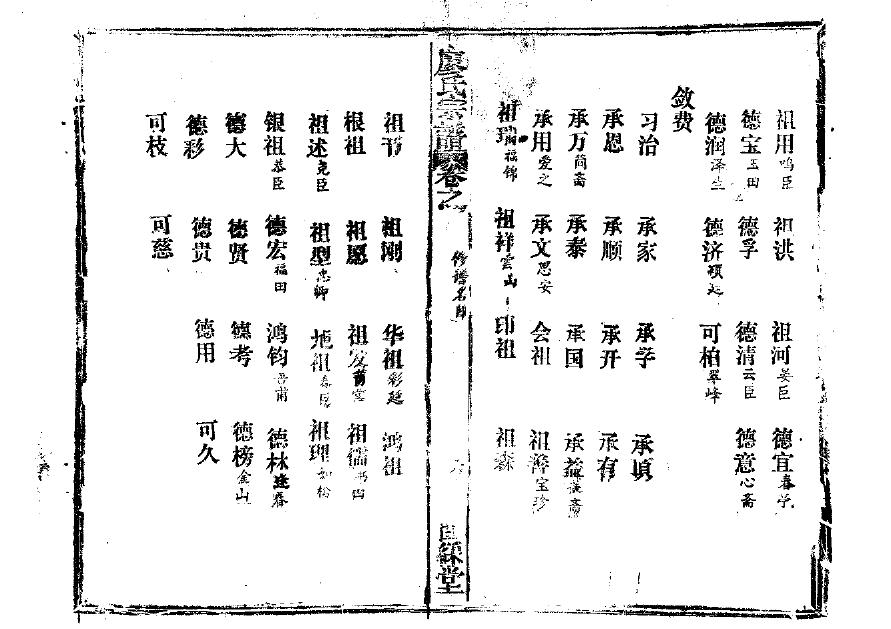 祖用鸣臣 祖洪 祖河晏臣 德宜春学
德宝玉田 德孚 德清云臣 德意心斋
德润泽生 德济 可柏翠峰
敛费
习治 承家 承学 承顷
承恩 承顺 承开 承有
承万简斋 承泰 承国 承益
承用爱之 承文思安 会祖 祖善宝珍
祖瑞福锦 祖祥雲山 印祖 祖森
廖氏宗譜 卷之
修譜名目
六
堂
祖节 祖刚 华祖彩廷 鸿祖
根祖 祖愿 祖发 祖儒书田
祖述克臣 祖型忠卿 地祖春臣 祖理如松
银祖恭臣 德宏福田 鸿钧吾甫 德林逢春
德大 德贤 德考 德榜金山
德彩 德贵 德用 可久
可枝 可慈